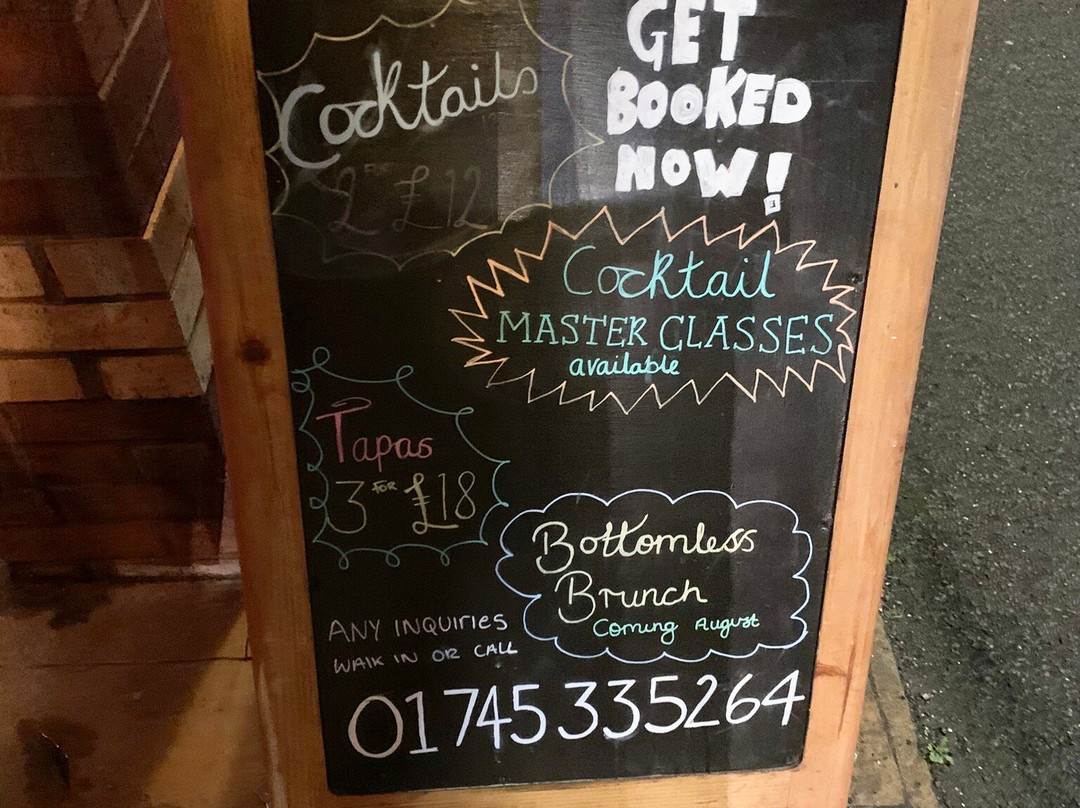 Cocktails
2 FOR £12
GET
BOOKED
NOW!
Cocktail
MASTER CLASSES
available
Tapas
3 FOR £18
Bottomless
Brunch
Coming August
ANY INQUIRIES
WALK IN OR CALL
01745 335264